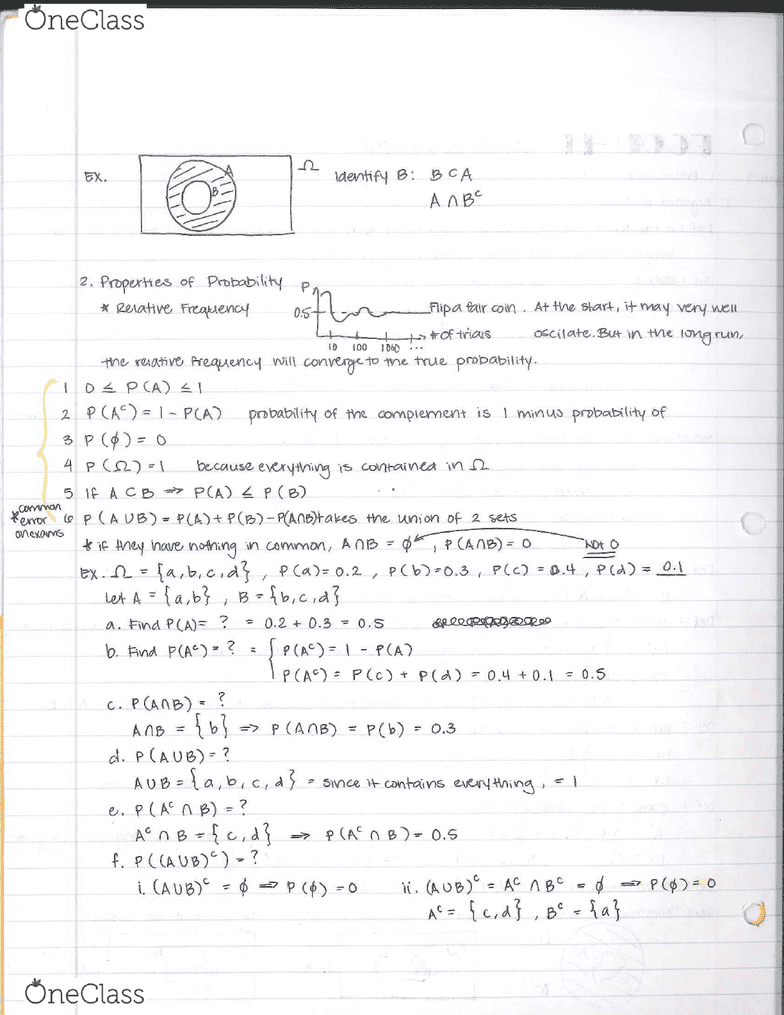 OneClass
Ex.
A
B
Ω
Identify B: B ⊂ A
A ∩ Bᶜ
2. Properties of Probability
* Relative Frequency
P
0.5
10 100 1000 ...
# of trials
Flip a fair coin. At the start, it may very well
oscilate. But in the long run,
the relative frequency will converge to the true probability.
1 0 ≤ P(A) ≤ 1
2 P(Aᶜ) = 1 - P(A) probability of the complement is 1 minus probability of
3 P(ϕ) = 0
4 P(Ω) = 1 because everything is contained in Ω
5 If A ⊂ B ⇒ P(A) ≤ P(B)
* common error on exams
6 P(A∪B) = P(A) + P(B) - P(A∩B) takes the union of 2 sets
* if they have nothing in common, A∩B = ϕ, P(A∩B) = 0 NOT 0
Ex. Ω = {a,b,c,d}, P(a) = 0.2, P(b) = 0.3, P(c) = 0.4, P(d) = 0.1
Let A = {a,b}, B = {b,c,d}
a. Find P(A) = ? = 0.2 + 0.3 = 0.5
b. Find P(Aᶜ) = ? = { P(Aᶜ) = 1 - P(A)
P(Aᶜ) = P(c) + P(d) = 0.4 + 0.1 = 0.5
c. P(A∩B) = ?
A∩B = {b} ⇒ P(A∩B) = P(b) = 0.3
d. P(A∪B) = ?
A∪B = {a,b,c,d} = since it contains everything, = 1
e. P(Aᶜ∩B) = ?
Aᶜ∩B = {c,d} ⇒ P(Aᶜ∩B) = 0.5
f. P((A∪B)ᶜ) = ?
i. (A∪B)ᶜ = ϕ ⇒ P(ϕ) = 0 ii. (A∪B)ᶜ = Aᶜ∩Bᶜ = ϕ ⇒ P(ϕ) = 0
Aᶜ = {c,d}, Bᶜ = {a}
OneClass